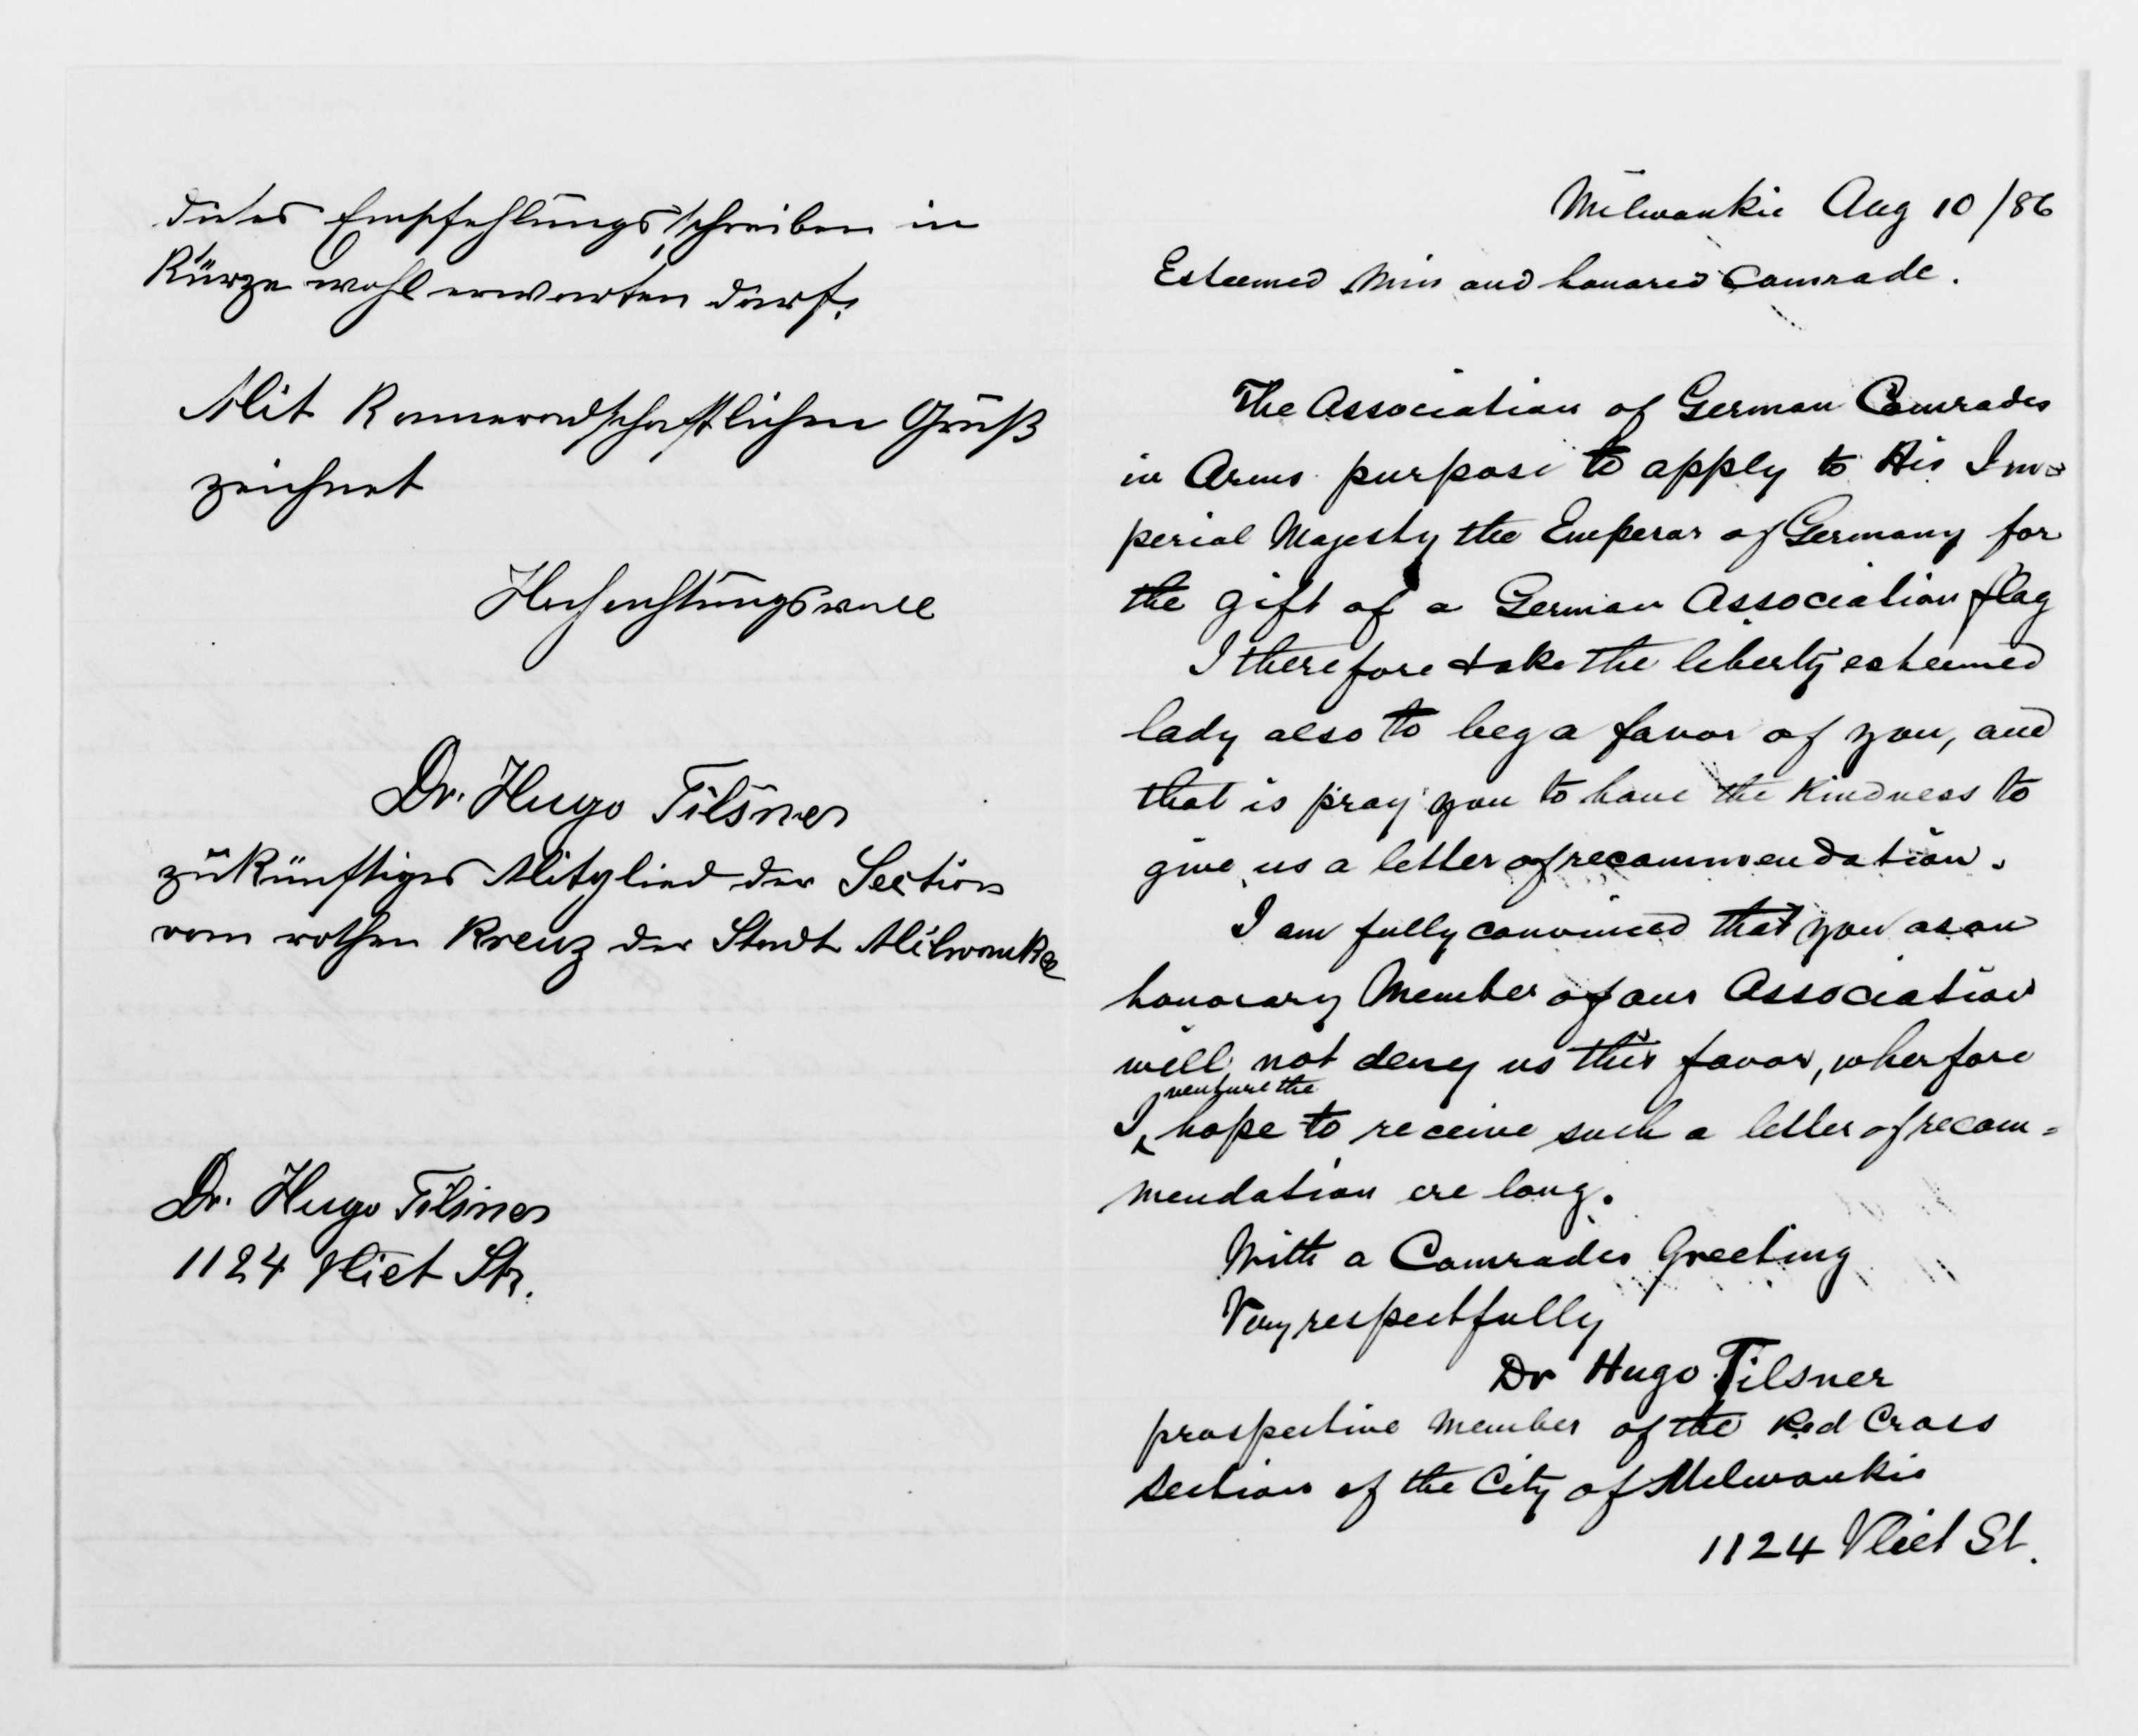 dieses Empfehlungsschreiben in
Kürze wohl erwarten darf.
Mit Kammeradschaftlichen Gruß
zeichnet
Hochachtungsvoll
Dr. Hugo Tilsner
zukünftiges Mitglied der Section
vom rothen Kreuz der Stadt Milwaukee
Dr. Hugo Tilsner
1124 Vliet Str.
Milwaukie Aug 10/86
Esteemed Miss and honored Comrade.
The Association of German Comrades
in Arms purpose to apply to His Im-
perial Majesty the Emperor of Germany for
the gift of a German Association flag
I therefore take the liberty esteemed
lady also to beg a favor of you, and
that is pray you to have the kindness to
give us a letter of recommendation.
I am fully convinced that you as an
honorary Member of our Association
will not deny us this favor, wherfore
I venture the hope to receive such a letter of recom=
mendation ere long.
With a Comrades Greeting
Very respectfully
Dr Hugo Tilsner
prospective Member of the Red Cross
Section of the City of Milwaukie
1124 Vliet St.